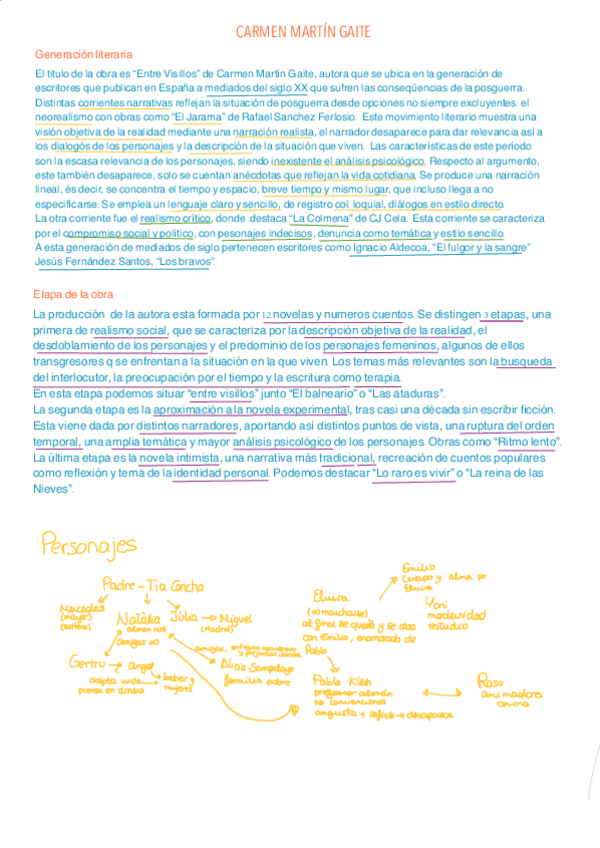 CARMEN MARTÍN GAITE
Generación literaria
El titulo de la obra es “Entre Visillos” de Carmen Martín Gaite, autora que se ubica en la generación de
escritores que publican en España a mediados del siglo XX que sufren las conseqüencias de la posguerra.
Distintas corrientes narrativas reflejan la situación de posguerra desde opciones no siempre excluyentes: el
neorealismo con obras como “El Jarama” de Rafael Sanchez Ferlosio. Este movimiento literario muestra una
visión objetiva de la realidad mediante una narración realista, el narrador desaparece para dar relevancia así a
los dialogós de los personajes y la descripción de la situación que viven. Las características de este periodo
son la escasa relevancia de los personajes, siendo inexistente el análisis psicológico. Respecto al argumento,
este también desaparece, solo se cuentan anécdotas que reflejan la vida cotidiana. Se produce una narración
lineal, és decir, se concentra el tiempo y espacio, breve tiempo y mismo lugar, que incluso llega a no
especificarse. Se emplea un lenguaje claro y sencillo, de registro col. loquial, diálogos en estilo directo.
La otra corriente fue el realismo crítico, donde destaca “La Colmena” de CJ Cela. Esta corriente se caracteriza
por el compromiso social y político, con pesonajes indecisos, denuncia como temática y estilo sencillo.
A esta generación de mediados de siglo pertenecen escritores como Ignacio Aldecoa, “El fulgor y la sangre”
Jesús Fernández Santos, “Los bravos”.
Etapa de la obra
La producción de la autora esta formada por 12 novelas y numeros cuentos. Se distingen 3 etapas, una
primera de realismo social, que se caracteriza por la descripción objetiva de la realidad, el
desdoblamiento de los personajes y el predominio de los personajes femeninos, algunos de ellos
transgresores q se enfrentan a la situación en la que viven. Los temas más relevantes son la busqueda
del interlocutor, la preocupación por el tiempo y la escritura como terapia.
En esta etapa podemos situar “entre visillos” junto “El balneario” o “Las ataduras”.
La segunda etapa es la aproximación a la novela experimental, tras casi una década sin escribir ficción.
Esta viene dada por distintos narradores, aportando así distintos puntos de vista, una ruptura del orden
temporal, una amplia temática y mayor análisis psicológico de los personajes. Obras como “Ritmo lento”.
La última etapa es la novela intimista, una narrativa más tradicional, recreación de cuentos populares
como reflexión y tema de la identidad personal. Podemos destacar “Lo raro es vivir” o “La reina de las
Nieves”.
Personajes
Padre - Tía Concha
Mercedes
(mayor)
(soltera)
Natàlia
amigas no
Júlia → Miguel
(Madrid)
Gertru → angel
acepta vida → beber y
piensa en dinero mujeres
amigas,
Alicia Sampelayo
familia pobre
Elvira
al final se quedó y se casa
con Emilio, enamorada de
Pablo
Emilio
cuerpo y alma por
Elvira
Yoni
modernidad
estudio
Pablo Klein
profesor alemán
no convencional
angustia → asfixia → desaparece
Rosa
animadora